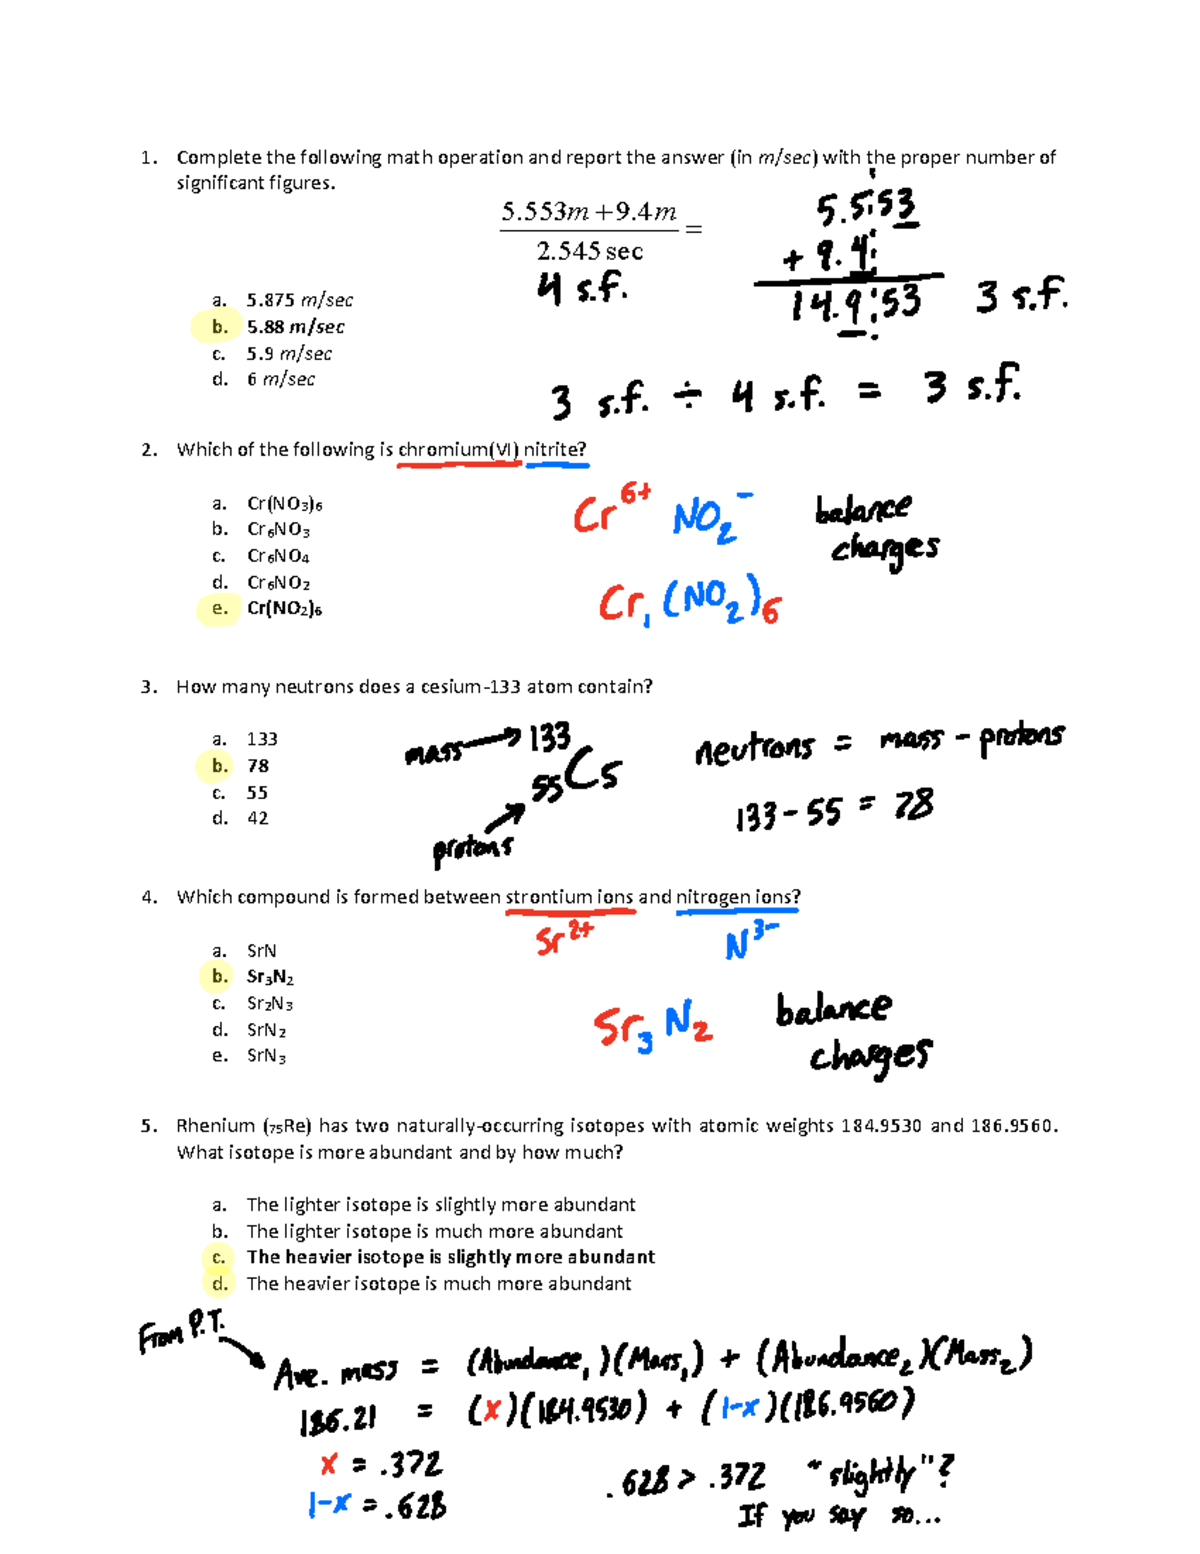 1. Complete the following math operation and report the answer (in m/sec) with the proper number of
significant figures.
5.553m + 9.4m
2.545 sec
=
4 s.f.
5.553
+ 9.4
14.953 3 s.f.
a. 5.875 m/sec
b. 5.88 m/sec
c. 5.9 m/sec
d. 6 m/sec
3 s.f. ÷ 4 s.f. = 3 s.f.
2. Which of the following is chromium(VI) nitrite?
a. Cr(NO3)6
b. Cr6NO3
c. Cr6NO4
d. Cr6NO2
e. Cr(NO2)6
Cr6+ NO2- balance
charges
Cr1(NO2)6
3. How many neutrons does a cesium-133 atom contain?
a. 133
b. 78
c. 55
d. 42
mass → 133
55Cs
protons
neutrons = mass - protons
133 - 55 = 78
4. Which compound is formed between strontium ions and nitrogen ions?
Sr2+ N3-
a. SrN
b. Sr3N2
c. Sr2N3
d. SrN2
e. SrN3
Sr3N2 balance
charges
5. Rhenium (75Re) has two naturally-occurring isotopes with atomic weights 184.9530 and 186.9560.
What isotope is more abundant and by how much?
a. The lighter isotope is slightly more abundant
b. The lighter isotope is much more abundant
c. The heavier isotope is slightly more abundant
d. The heavier isotope is much more abundant
From P.T.
Ave. mass = (Abundance1)(Mass1) + (Abundance2)(Mass2)
186.21 = (x)(184.9530) + (1-x)(186.9560)
x = .372
1-x = .628
.628 > .372 "slightly"?
If you say so...